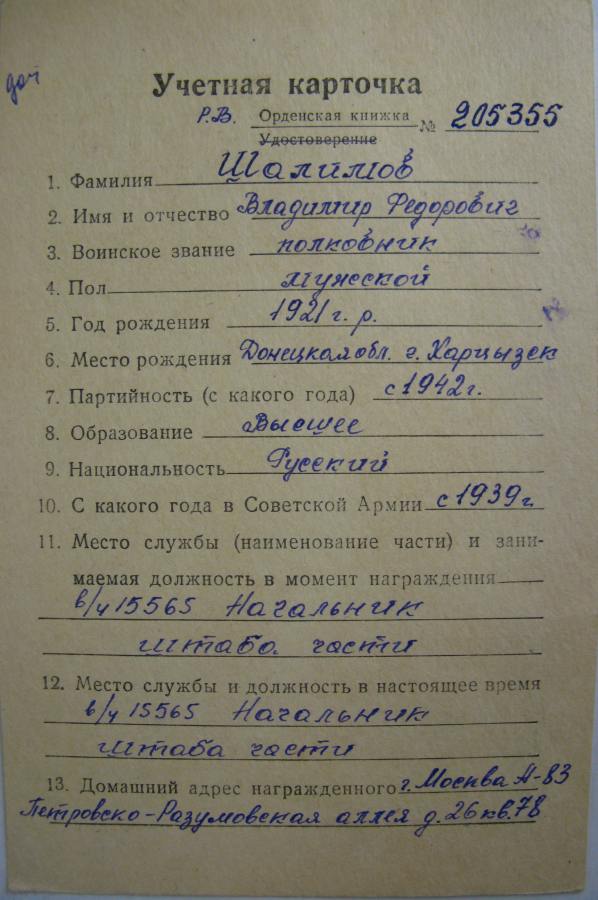 Учетная карточка
Р.В. Орденская книжка № 205355
Удостоверение
1. Фамилия Шалимов
2. Имя и отчество Владимир Федорович
3. Воинское звание полковник
4. Пол мужской
5. Год рождения 1921 г. р.
6. Место рождения Донецкая обл. г. Харцызск
7. Партийность (с какого года) с 1942 г.
8. Образование Высшее
9. Национальность Русский
10. С какого года в Советской Армии с 1939 г.
11. Место службы (наименование части) и зани-
маемая должность в момент награждения
в/ч 15565 Начальник
штаба части
12. Место службы и должность в настоящее время
в/ч 15565 Начальник
штаба части
13. Домашний адрес награжденного г. Москва А-83
Петровско-Разумовская аллея д. 26 кв. 78